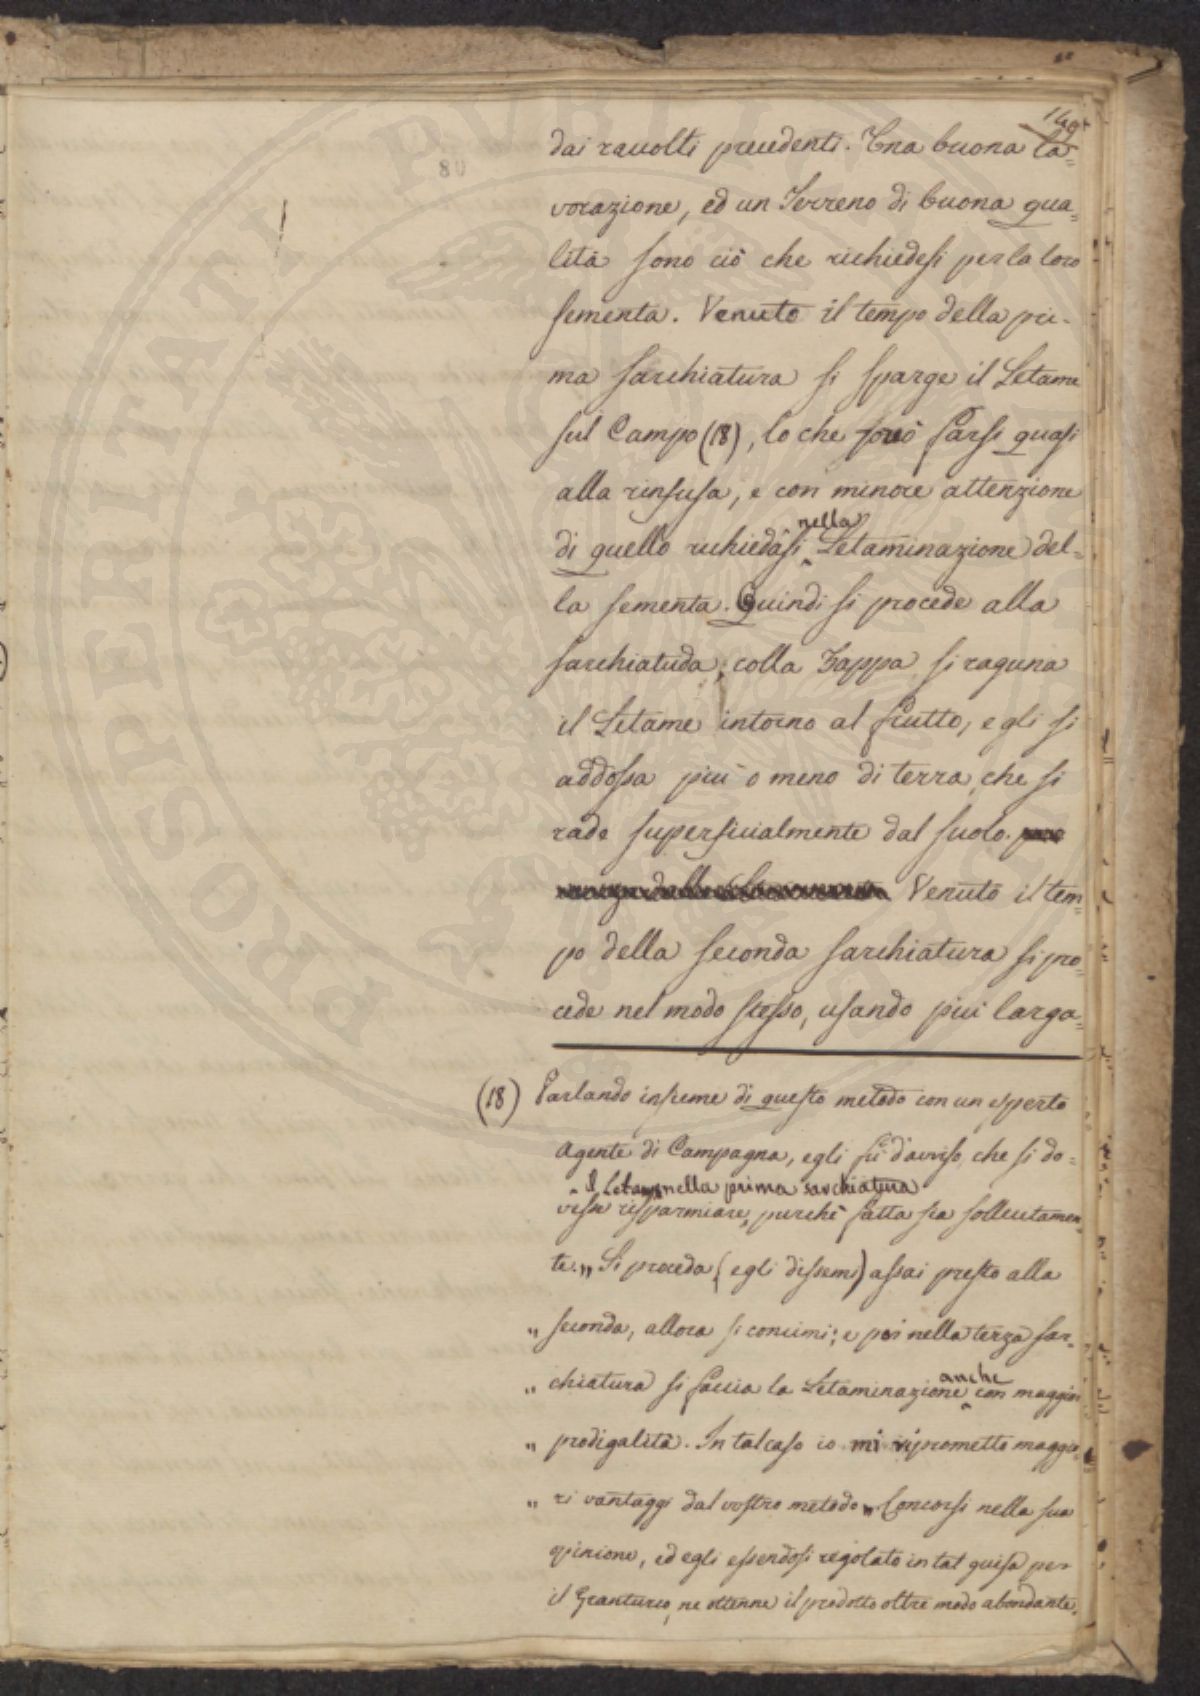 80
dai raccolti precedenti. Una buona la=
vorazione, ed un Terreno di buona qua=
lità sono ciò che richiedesi per la loro
sementa. Venuto il tempo della pri-
ma sarchiatura si sparge il Letame
sul Campo (18), lo che può farsi quasi
alla rinfusa, e con minore attenzione
di quello richiedasi nella Letaminazione del=
la sementa. Quindi si procede alla
sarchiatuda; colla Zappa si raguna
il Letame intorno al frutto, e gli si
addossa più o meno di terra, che si
rade superficialmente dal suolo.
Venuto il tem=
po della seconda sarchiatura si pro=
cede nel modo stesso, usando più larga=
(18) Parlando insieme di questo metodo con un esperto
Agente di Campagna, egli fu d'avviso, che si do=
il Letame nella prima sarchiatura
vesse risparmiare, purchè fatta sia sollecitamen=
te. „ Si proceda (egli dissemi) assai presto alla
„ seconda, allora si concimi; e poi nella terza sar=
„ chiatura si faccia la Letaminazione anche con maggior
„ prodigalità. In tal caso io mi riprometto maggio=
„ ri vantaggi dal vostro metodo „ Concorsi nella sua
opinione, ed egli essendosi regolato in tal guisa per
il Granturco, ne ottenne il prodotto oltre modo abondante.
PROSPERITATI PVBLIC